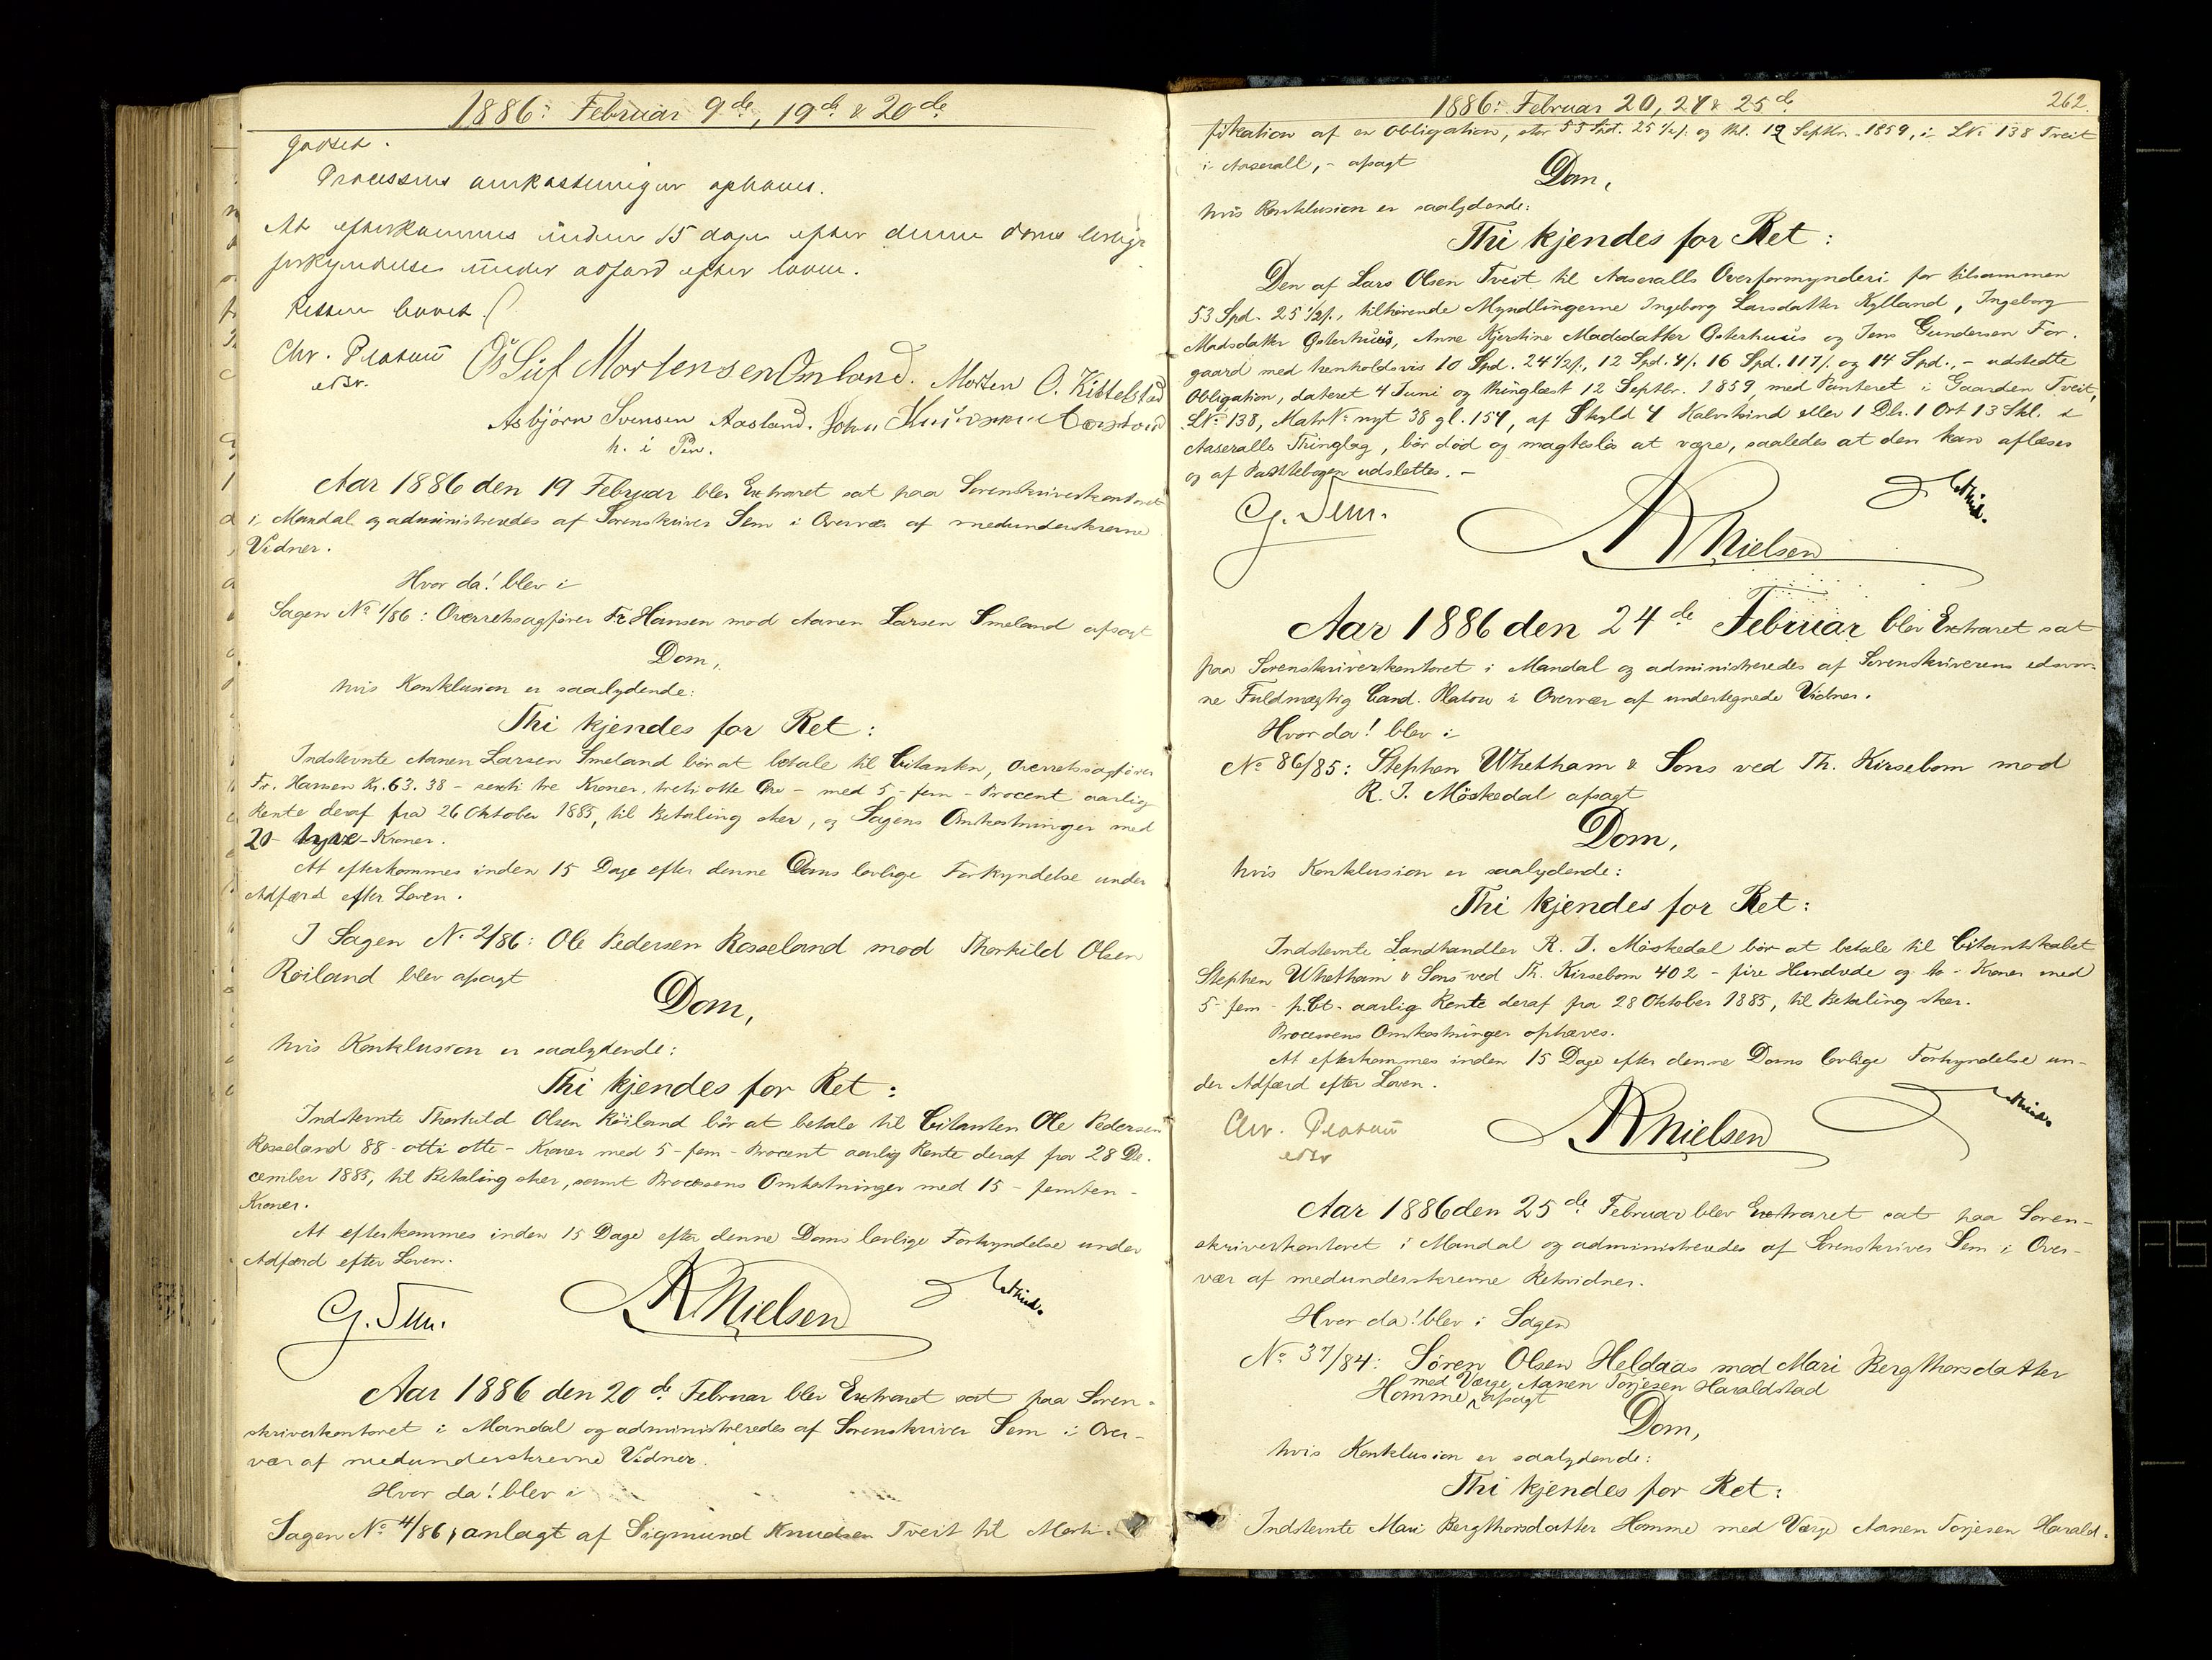 1886: Februar 9de, 19de & 20de
godset.
Processens omkostninger ophæves.
At efterkommes inden 15 dage efter denne doms lovlige
forkyndelse under adfærd efter loven.
Retten hævet.
Chr. Platou
edsv.
Mortensen Omland. Morten O. Kittelstad
Asbjørn Svensen Aasland. John
h. i Pen.
Aar 1886 den 19 Februar blev Extraret sat paa Sorenskriverkontoret
i Mandal og administreredes af Sorenskriver Sem i Overvær af medunderskrevne
Vidner.
Hvor da! blev i
Sagen No 1/86: Overretssagfører Fr. Hansen mod Aanen Larsen Smeland afsagt
Dom,
hvis Konklusion er saalydende:
Thi kjendes for Ret:
Indstevnte Aanen Larsen Smeland bør at betale til Citanten, Overretssagfører
Fr. Hansen Kr. 63.38 - sexti tre Kroner, treti otte Øre - med 5 - fem - Procent aarlig
Rente deraf fra 26 Oktober 1885, til Betaling sker, og Sagens Omkostninger med
20 - tyve - Kroner.
At efterkommes inden 15 Dage efter denne Doms lovlige Forkyndelse under
Adfærd efter Loven.
I Sagen No 2/86: Ole Pedersen Rosseland mod Thorkild Olsen
Röiland blev afsagt
Dom,
hvis Konklusion er saalydende:
Thi kjendes for Ret:
Indstevnte Thorkild Olsen Röiland bör at betale til Citanten Ole Pedersen
Rosseland 88 - otti otte - Kroner med 5 - fem - Procent aarlig Rente deraf fra 28 De-
cember 1885, til Betaling sker, samt Processens Omkostninger med 15 - femten -
Kroner.
At efterkommes inden 15 Dage efter denne Doms lovlige Forkyndelse under
Adfærd efter Loven.
G. Sem. Nielsen
Aar 1886 den 20de Februar blev Extraret sat paa Soren-
skriverkontoret i Mandal og administreredes af Sorenskriver Sem i Over-
vær af medunderskrevne Vidner.
Hvor da! blev i
Sagen No 4/86, anlagt af Sigmund Knudsen Tveit til Morti-
1886: Februar 20, 24 & 25de
262.
fikation af en Obligation, stor 53 Spd. 25 1/2 /. og thl. 12 Septbr. 1859, i LNo 138 Tveit
i Aaserall, - afsagt
Dom,
hvis Konklusion er saalydende:
Thi kjendes for Ret:
Den af Lars Olsen Tveit til Aaseralls Overformynderi for tilsammen
53 Spd. 25 1/2 /., tilhørende Myndlingerne Ingeborg Larsdatter Kylland, Ingeborg
Madsdatter Østerhuus, Anne Kjerstine Madsdatter Østerhuus og Jens Gundersen For-
gaard med henholdsvis 10 Spd. 24 1/2 /., 12 Spd. 4 /. 16 Spd. 117 /. og 14 Spd., - udstedte
Obligation, dateret 4 Juni og thinglæst 12 Septbr. 1859, med Panteret i Gaarden Tveit,
LNo 138, MatrNo nyt 38 gl. 154, af Skyld 4 Kalvskind eller 1 Dlr. 1 Ort 13 Skl. i
Aaseralls Thinglag, bör död og magteslös at være, saaledes at den kan aflæses
og af Pantebogen udslettes. -
G. Sem. Nielsen
Aar 1886 den 24de Februar blev Extraret sat
paa Sorenskriverkontoret i Mandal og administreredes af Sorenskriverens edsvor-
ne Fuldmægtig Cand. Platou i Overvær af undertegnede Vidner.
Hvor da! blev i
No 86/85: Stephen Whetham & Sons ved Th. Kirsebom mod
R. I. Möskedal afsagt
Dom,
hvis Konklusion er saalydende:
Thi kjendes for Ret:
Indstevnte Landhandler R. I. Möskedal bör at betale til Citantskabet
Stephen Whetham & Sons ved Th. Kirsebom 402 - fire Hundrede og to - Kroner med
5 - fem - p.Ct. aarlig Rente deraf fra 28 Oktober 1885, til Betaling sker.
Processens Omkostninger ophæves.
At efterkommes inden 15 Dage efter denne Doms lovlige Forkyndelse un-
der Adfærd efter Loven.
Chr. Platou Nielsen
edsv
Aar 1886 den 25de Februar blev Extraret sat paa Soren-
skriverkontoret i Mandal og administreredes af Sorenskriver Sem i Over-
vær af medunderskrevne Retsvidner.
Hvor da! blev i Sagen
No 37/84: Sören Olsen Heldaas mod Mari Bergthorsdatter
med Værge Aanen Torjesen Haraldstad
Homme afsagt
Dom,
hvis Konklusion er saalydende:
Thi kjendes for Ret:
Indstevnte Mari Bergthorsdatter Homme med Værge Aanen Torjesen Harald-